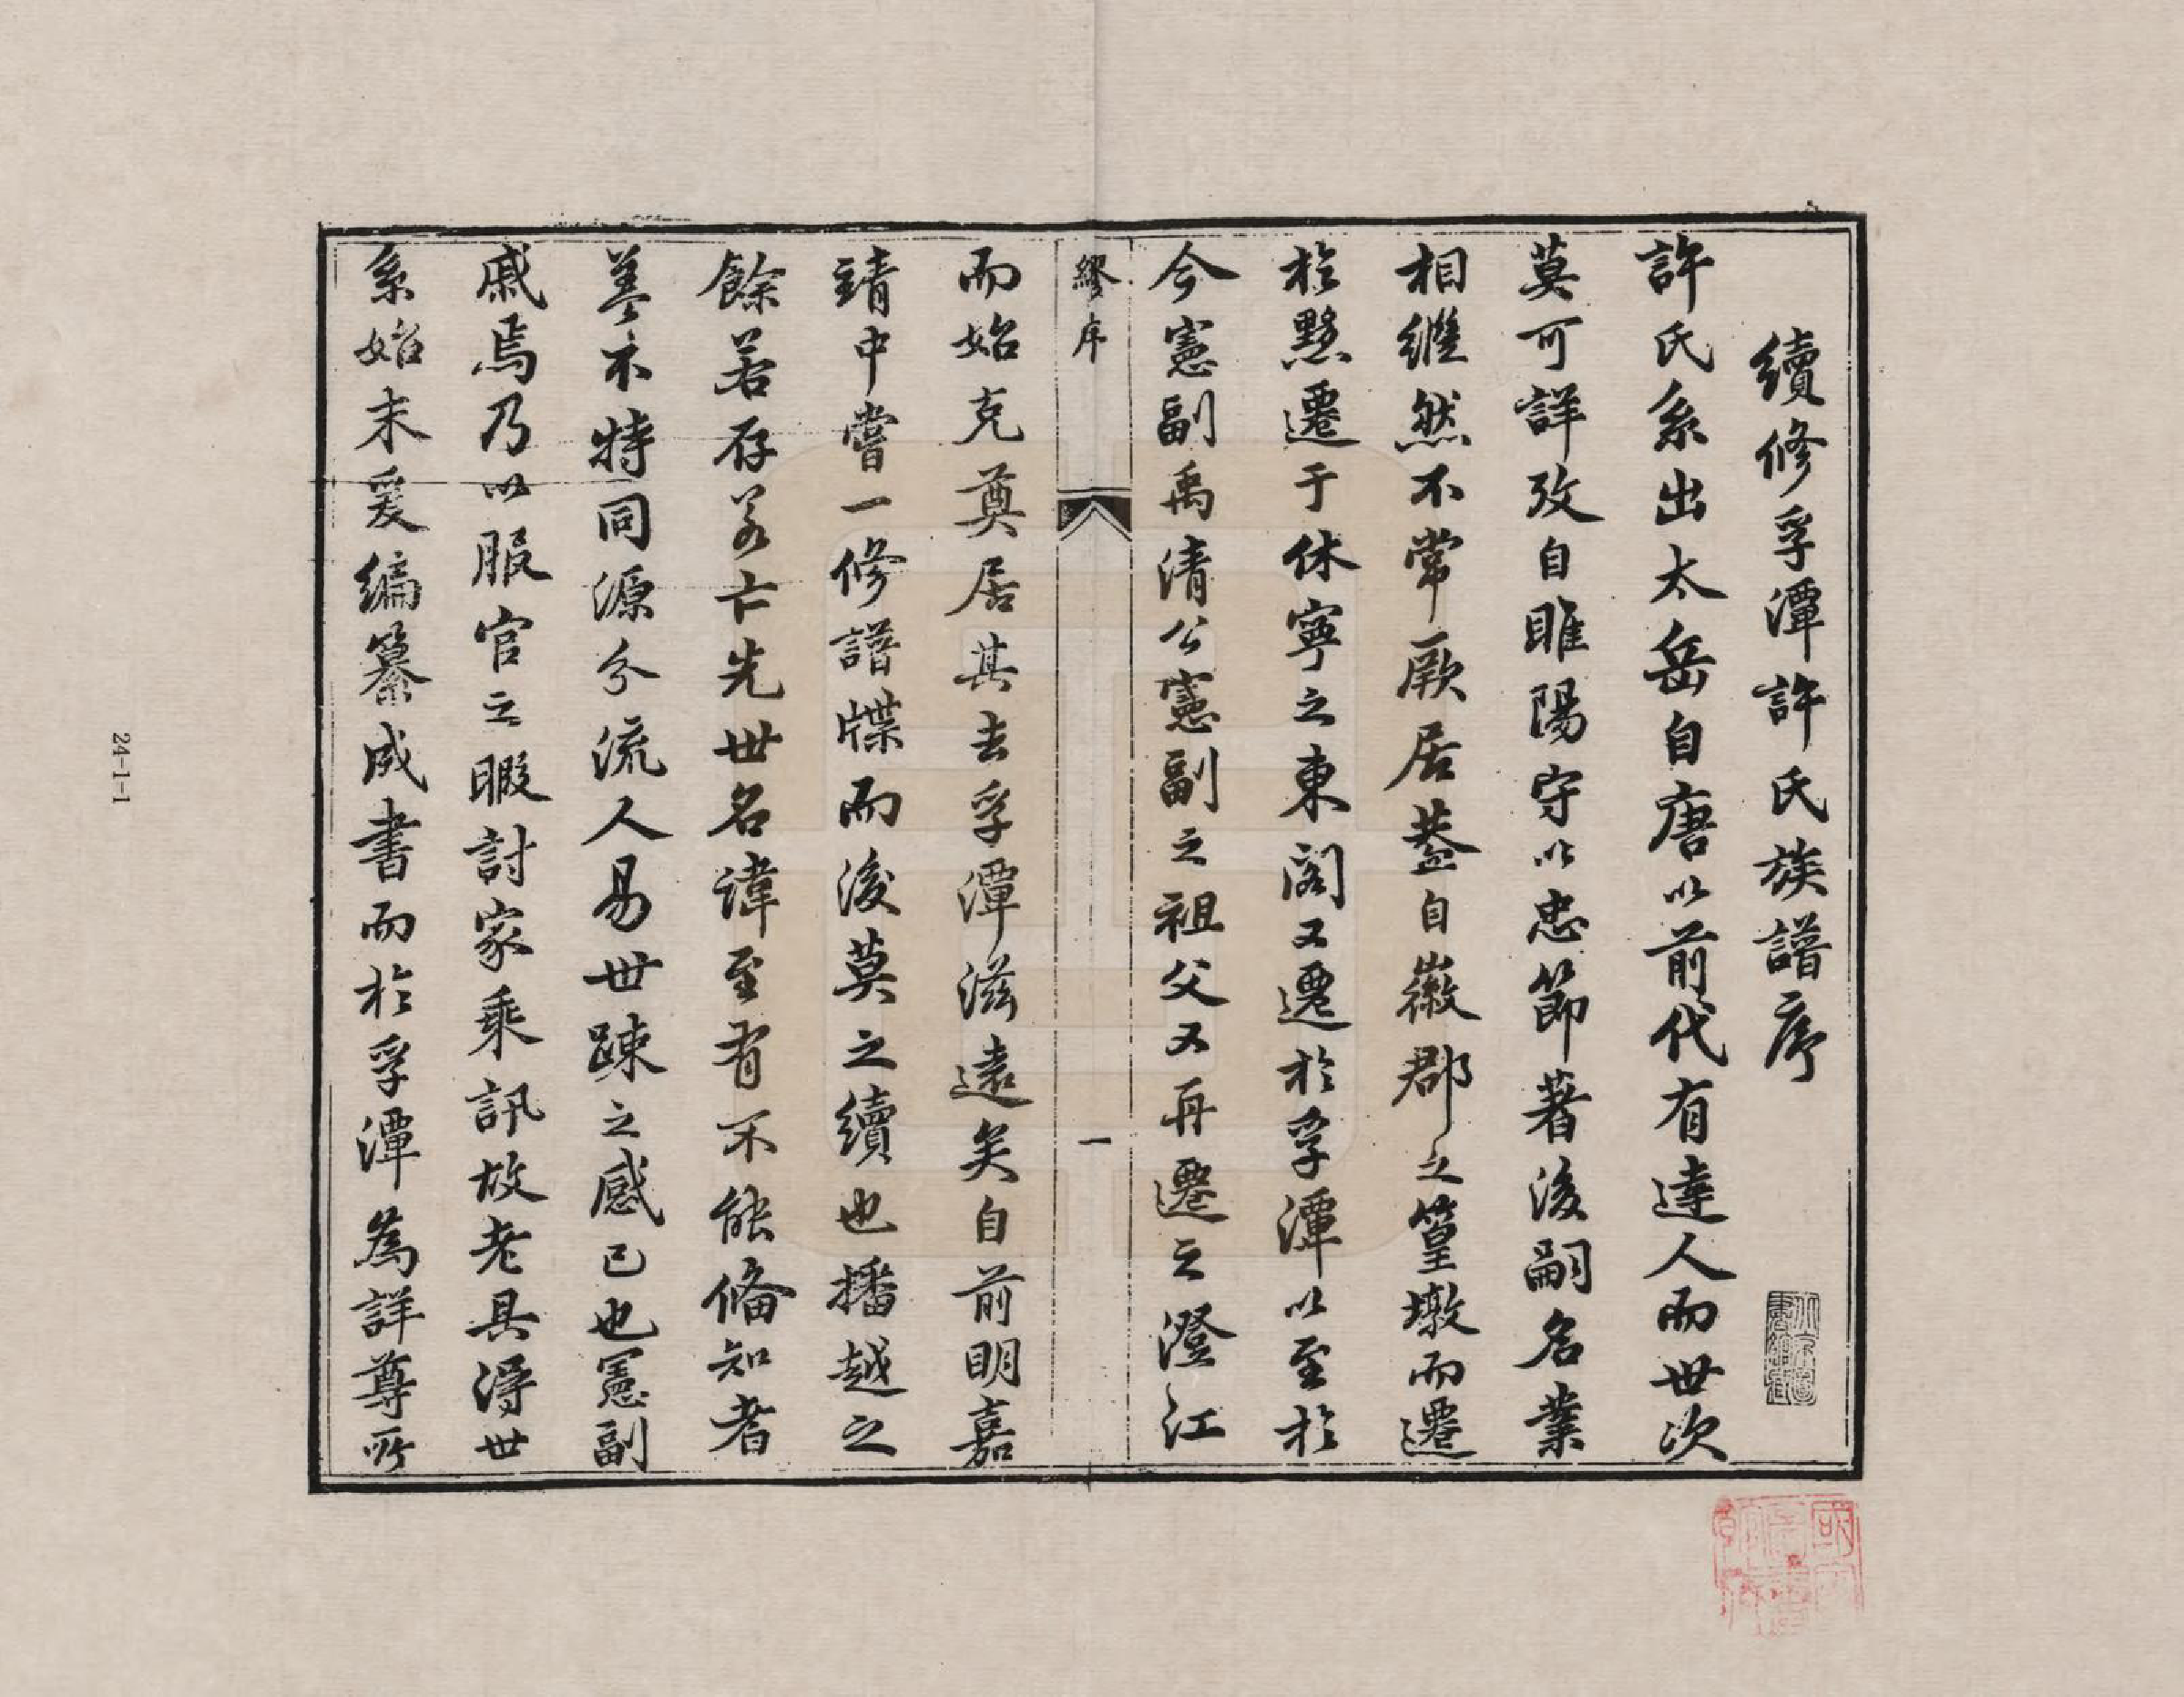 續修孚潭許氏族譜序
許氏系出太岳自唐以前代有達人而世次
莫可詳攷自睢陽守以忠節著後嗣名業
相繼然不常厥居葢自徽郡之篁墩而遷
於黟遷于休寧之東閣又遷於孚潭以至於
今憲副禹清公憲副之祖父又再遷之澄江
繆序
一
而始克奠居其去孚潭滋遠矣自前明嘉
靖中嘗一修譜牒而後莫之續也播越之
餘若存若亡先世名諱至有不能備知者
葢不特同源分流人易世踈之感已也憲副
戚焉乃以服官之暇討家乘訊故老具得世
系始末爰編纂成書而於孚潭為詳尊所
24-1-1